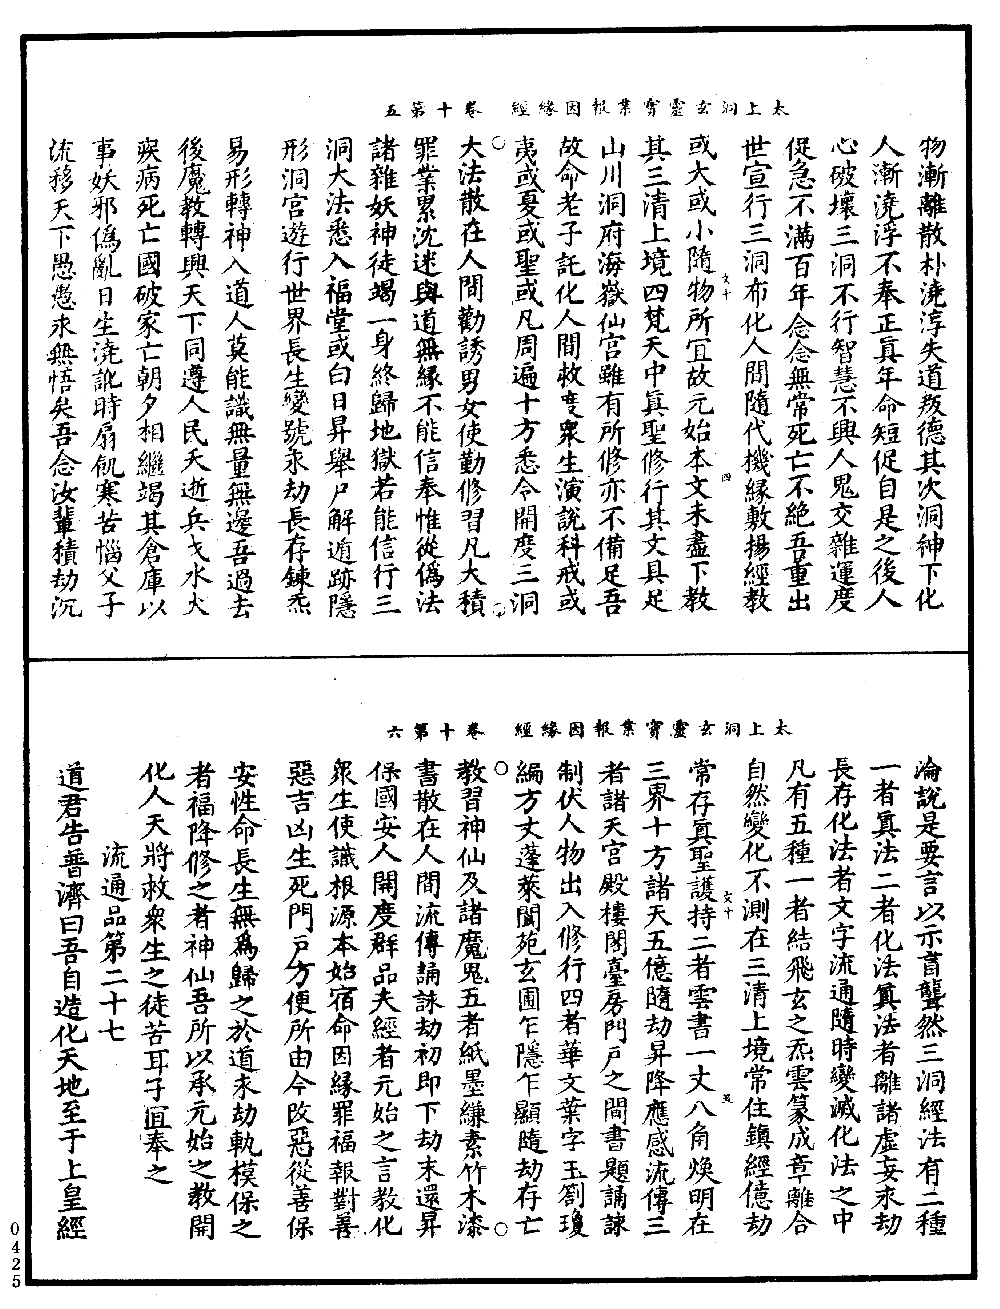 太上洞玄靈寶業報因緣經　卷十第五
物漸離散朴澆淳失道叛德其次洞神下化
人漸澆浮不奉正真年命短促自是之後人
心破壞三洞不行智慧不興人鬼交雜運度
促急不滿百年念念無常死亡不絕吾重出
世宣行三洞布化人間隨代機緣敷揚經教
文十　四
或大或小隨物所冝故元始本文未盡下教
其三清上境四梵天中真聖修行其文具足
山川洞府海嶽仙宮雖有所修亦不備足吾
故命老子託化人間救度衆生演說科戒或
夷或夏或聖或凡周遍十方悉令開度三洞
大法散在人間勸誘男女使勤修習凡大積
罪業累沈迷與道無緣不能信奉惟從僞法
諸雜妖神徒竭一身終歸地獄若能信行三
洞大法悉入福堂或白日昇舉尸解遁跡隱
形洞宮遊行世界長生變號永劫長存鍊炁
易形轉神入道人莫能識無量無邊吾過去
後魔教轉興天下同遵人民夭逝兵戈水火
疾病死亡國破家亡朝夕相繼竭其倉庫以
事妖邪僞亂日生澆訛時扇飢寒苦惱父子
流移天下愚愚永無悟矣吾念汝輩積劫沉
太上洞玄靈寶業報因緣經　卷十第六
淪說是要言以示盲聾然三洞經法有二種
一者真法二者化法真法者離諸虛妄永劫
長存化法者文字流通隨時變滅化法之中
凡有五種一者結飛玄之炁雲篆成章離合
自然變化不測在三清上境常住鎮經億劫
文十　五
常存真聖護持二者雲書一丈八角煥明在
三界十方諸天五億隨劫昇降應感流傳三
者諸天宮殿樓閣臺房門戶之間書題誦詠
制伏人物出入修行四者華文葉字玉劄瓊
編方丈蓬萊閬苑玄圃乍隱乍顯隨劫存亡
教習神仙及諸魔鬼五者紙墨縑素竹木漆
書散在人間流傳誦詠劫初即下劫末還昇
保國安人開度群品夫經者元始之言教化
衆生使識根源本始宿命因緣罪福報對善
惡吉凶生死門戶方便所由今改惡從善保
安性命長生無爲歸之於道永劫軌模保之
者福降修之者神仙吾所以承元始之教開
化人天將救衆生之徒苦耳子冝奉之
流通品第二十七
道君告普濟曰吾自造化天地至于上皇經
0425